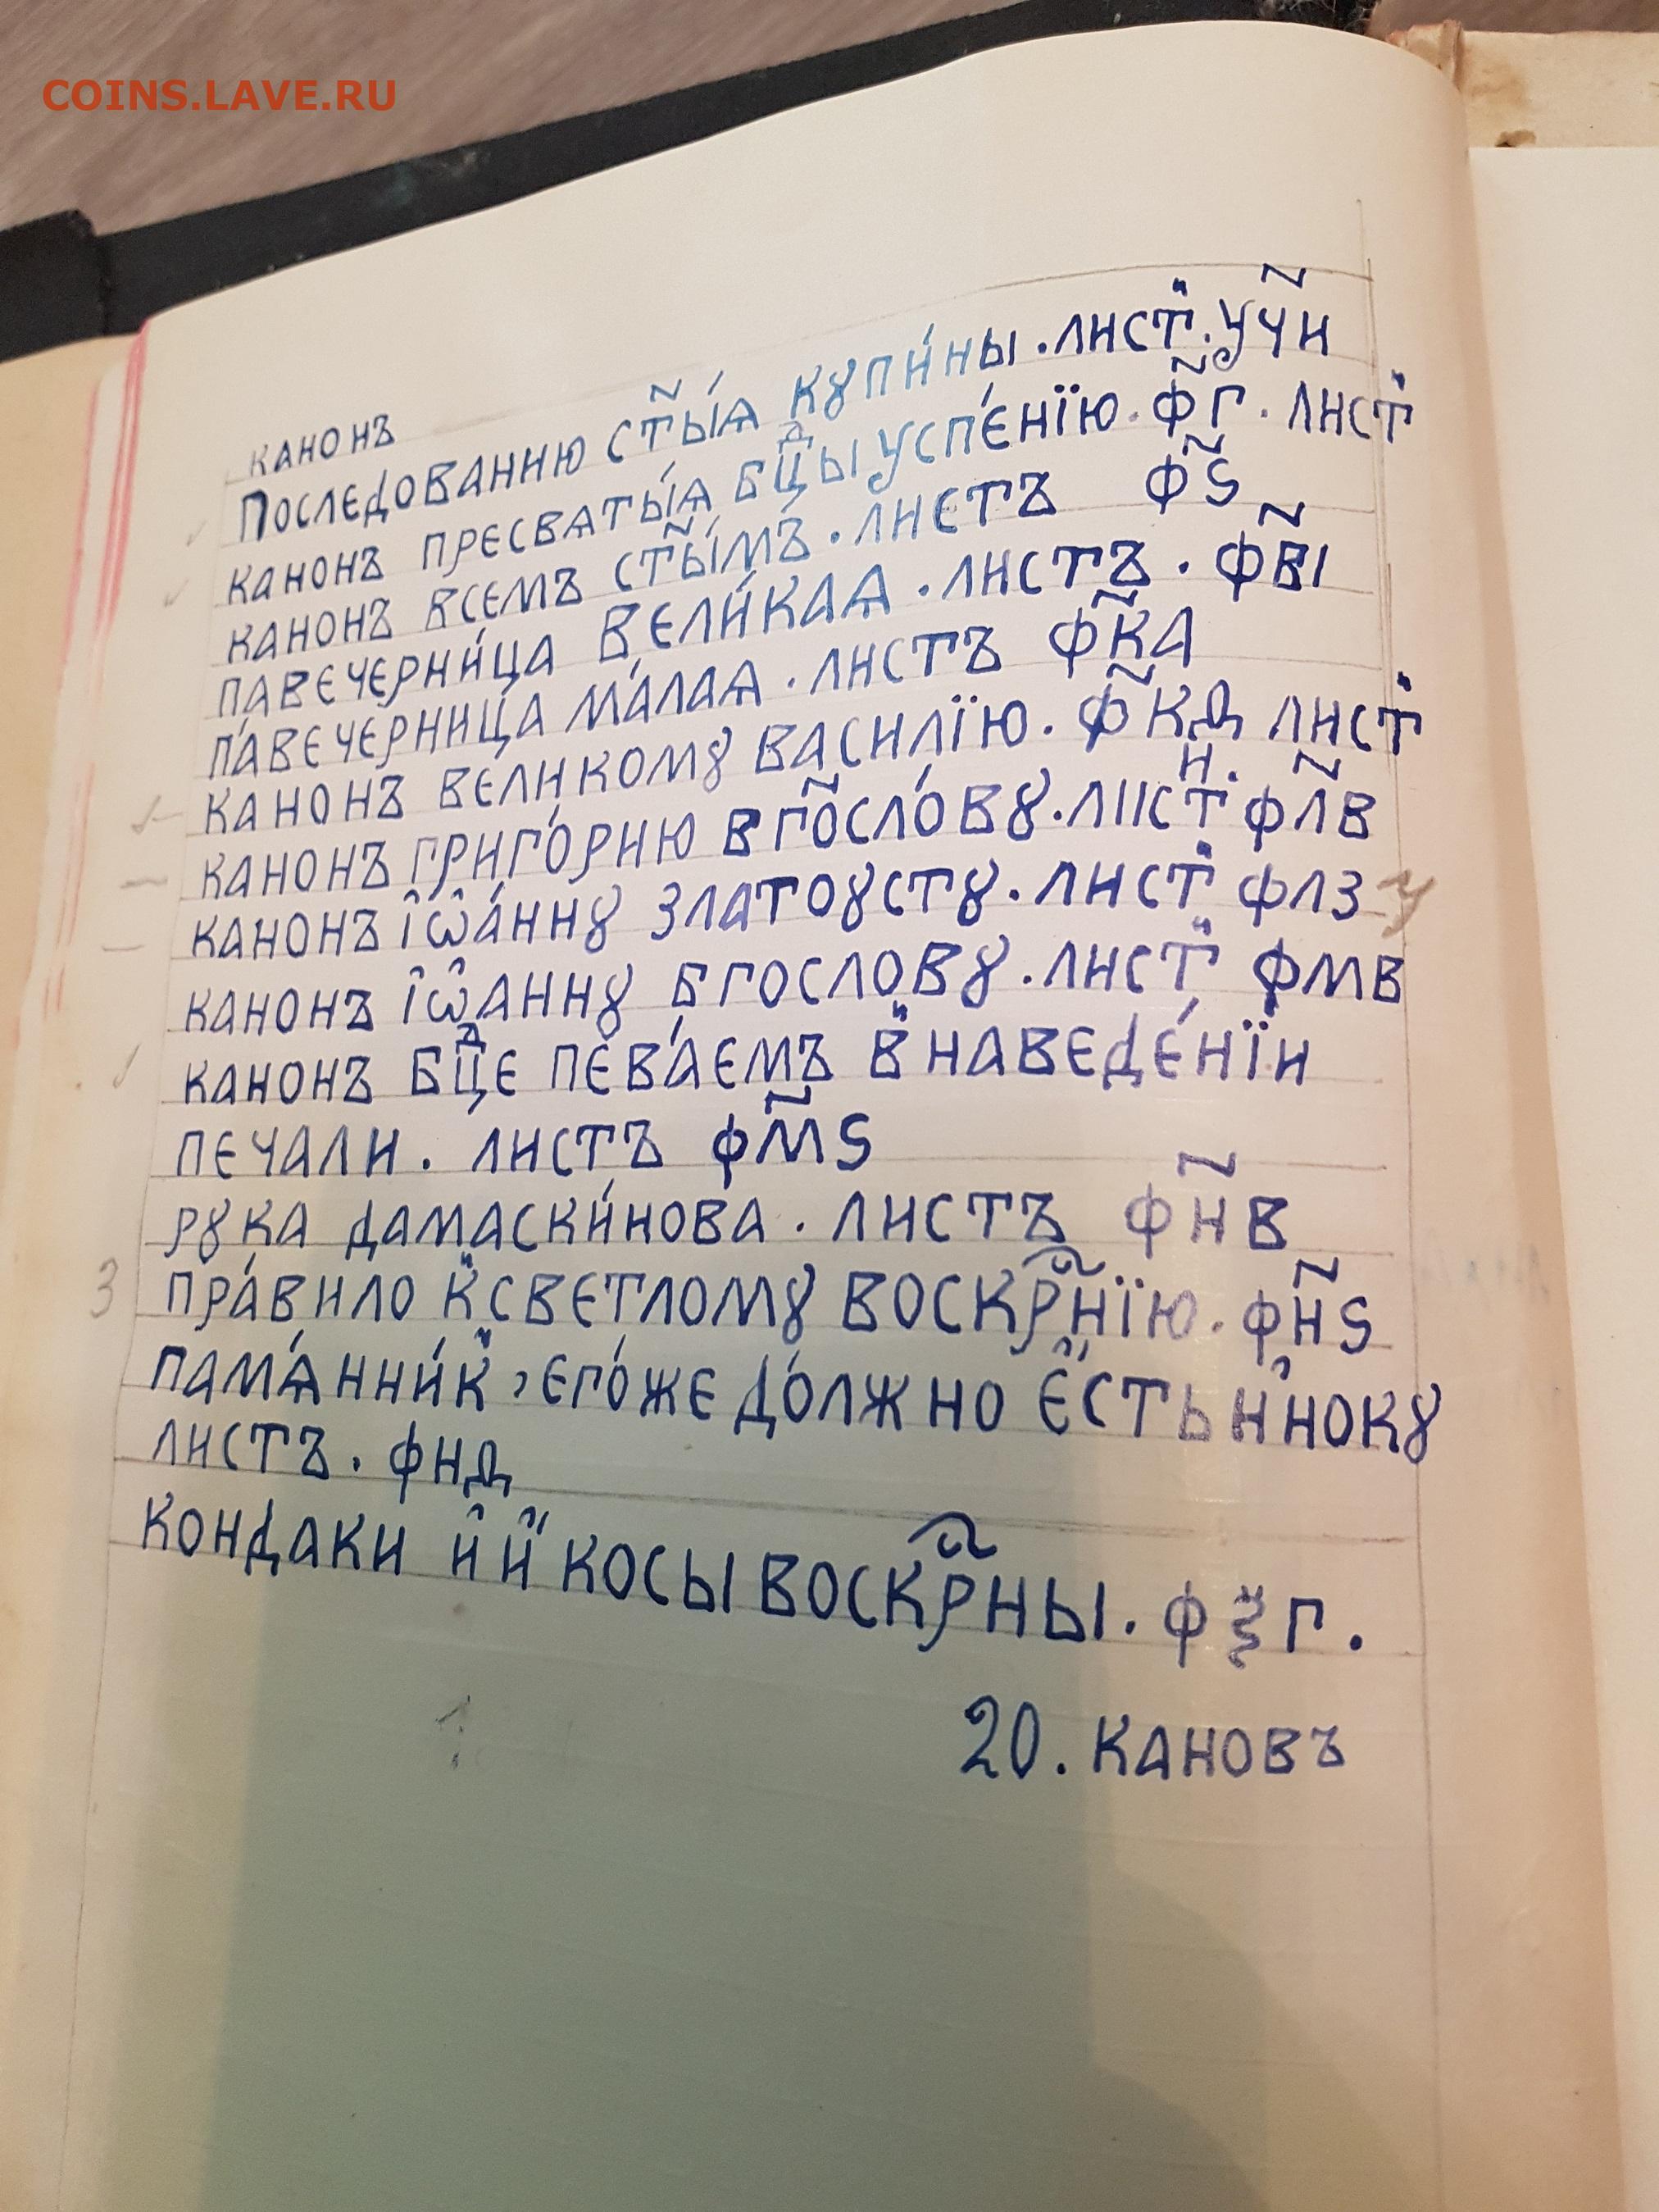 COINS.LAVE.RU
канонъ
Послєдованию ст҃ы́ѧ кꙋпи́ны . лист̾ . у҃чи
канонъ прєсвѧты́ѧ бцⷣы успє́нїю . ф҃г . лист̾
канонъ всємъ ст҃ы́мъ . листъ ф҃ѕ
павєчєрни́ца вєли́каѧ . листъ . ф҃ві
па́вєчєрница ма́лаѧ . листъ ф҃ка
канонъ вєликомꙋ василїю . ф҃кд лист̾
канонъ григо́рию в г҃осло́вꙋ . лист̾ . фл҃в
канонъ і҆ѡ҆а́ннꙋ златоꙋстꙋ . лист̾ флз
канонъ і҆ѡ҆аннꙋ бгословꙋ . лист̾ фмв
канонъ бцⷣє пєва́ємъ в̾ навєдє́нїи
пєчали . листъ фм҃ѕ
рꙋка дамаски́нова . листъ фн҃в
3 пра́вило к̾ свєтломꙋ воскр҃нїю . фн҃ѕ
памѧ́нни́к̾ , єго́жє до́лжно є҆́сть и҆ нокꙋ
листъ . фнд
кондаки и҆ и҆́ косы воскр҃ны . фѯг .
20 . кановъ